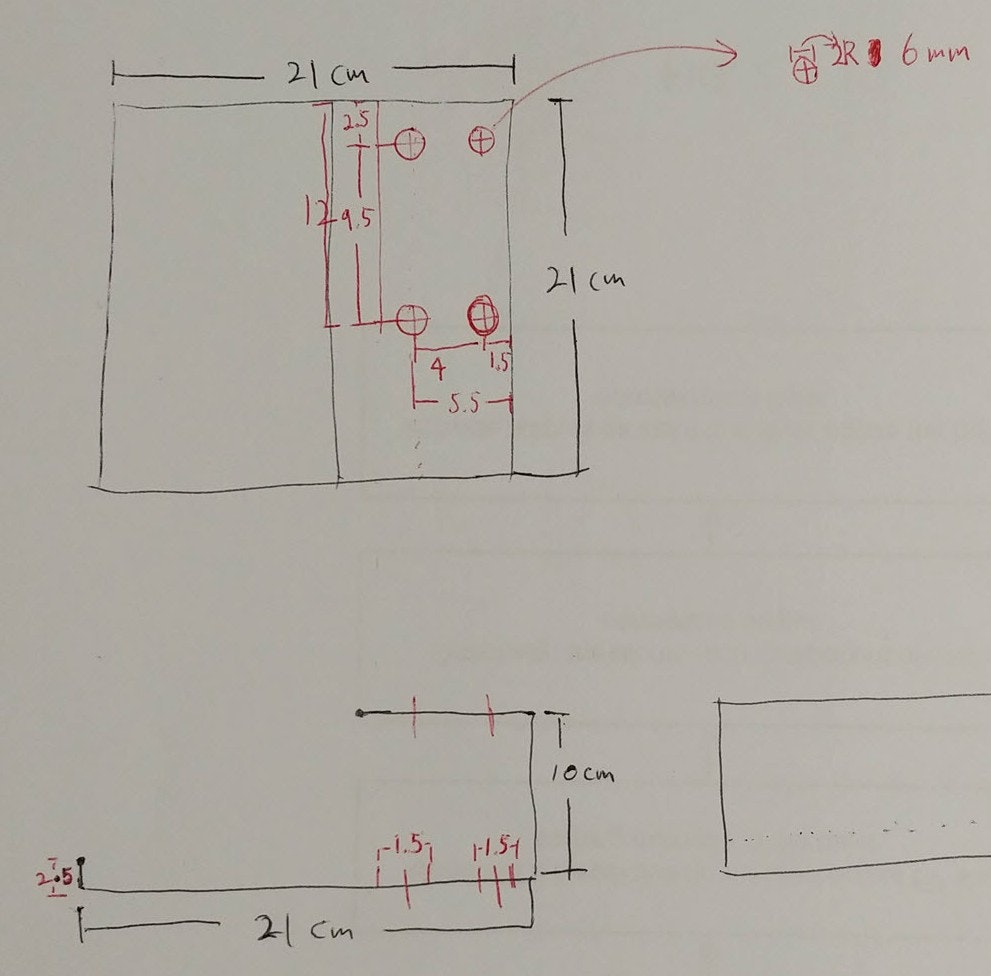 21 cm
2R 6 mm
2.5
12
9.5
21 cm
4
1.5
5.5
10 cm
1.5
1.5
2.5
21 cm